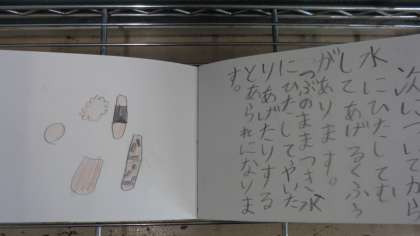 次いついてから
水にひたしてむ
してあげるくふう
があります。
つぶのままつき水
にひたしてやいた
りあげたりする
とあられになりま
す。